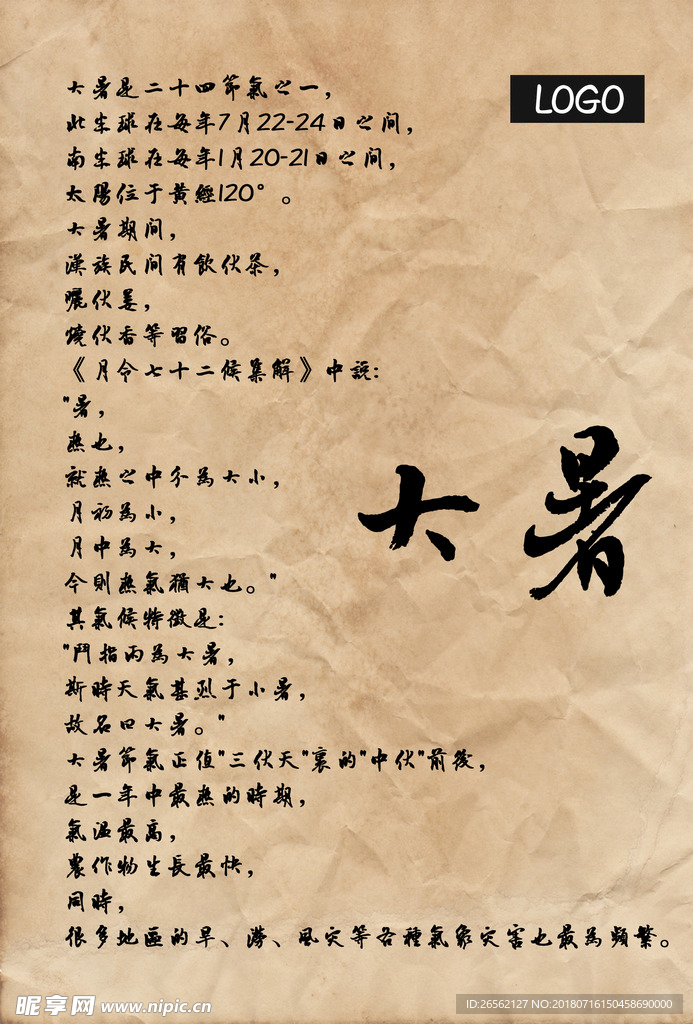 大暑是二十四節氣之一，
LOGO
北半球在每年7月22-24日之间，
南半球在每年1月20-21日之间，
太陽位于黄經120°。
大暑期间，
漢族民间有飲伏茶，
曬伏姜，
燒伏香等習俗。
《月令七十二候集解》中説：
"暑，
热也，
就热之中分為大小，
月初為小，
月中為大，
今則热氣猶大也。"
其氣候特徵是：
"鬥指丙為大暑，
斯時天氣甚烈于小暑，
故名曰大暑。"
大暑節氣正值"三伏天"裏的"中伏"前後，
是一年中最热的時期，
氣温最高，
農作物生長最快，
同時，
很多地區的旱、澇、風灾等各種氣象灾害也最為頻繁。
大暑
昵享网 www.nipic.cn
ID:26562127 NO:20180716150458690000